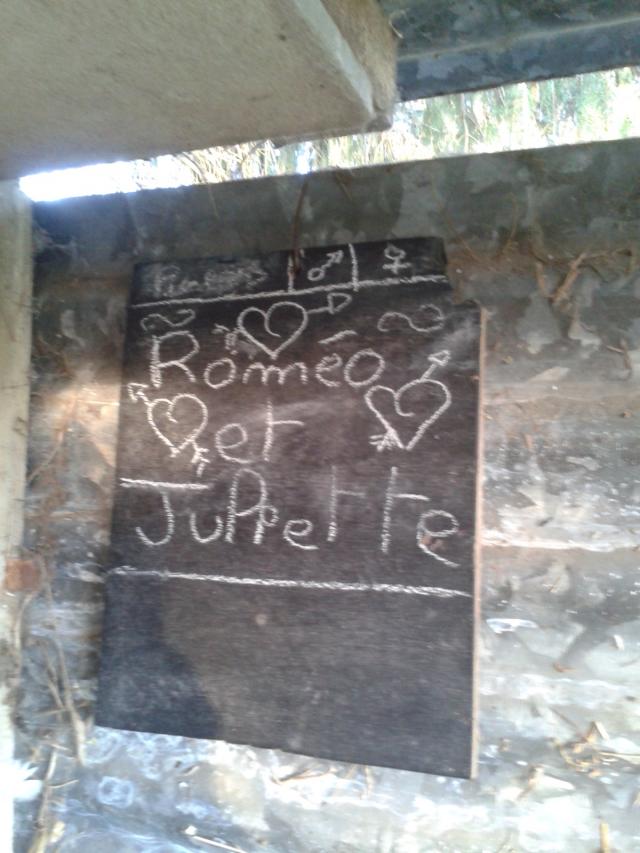 ♂ ♀
Roméo
et
JuPpette